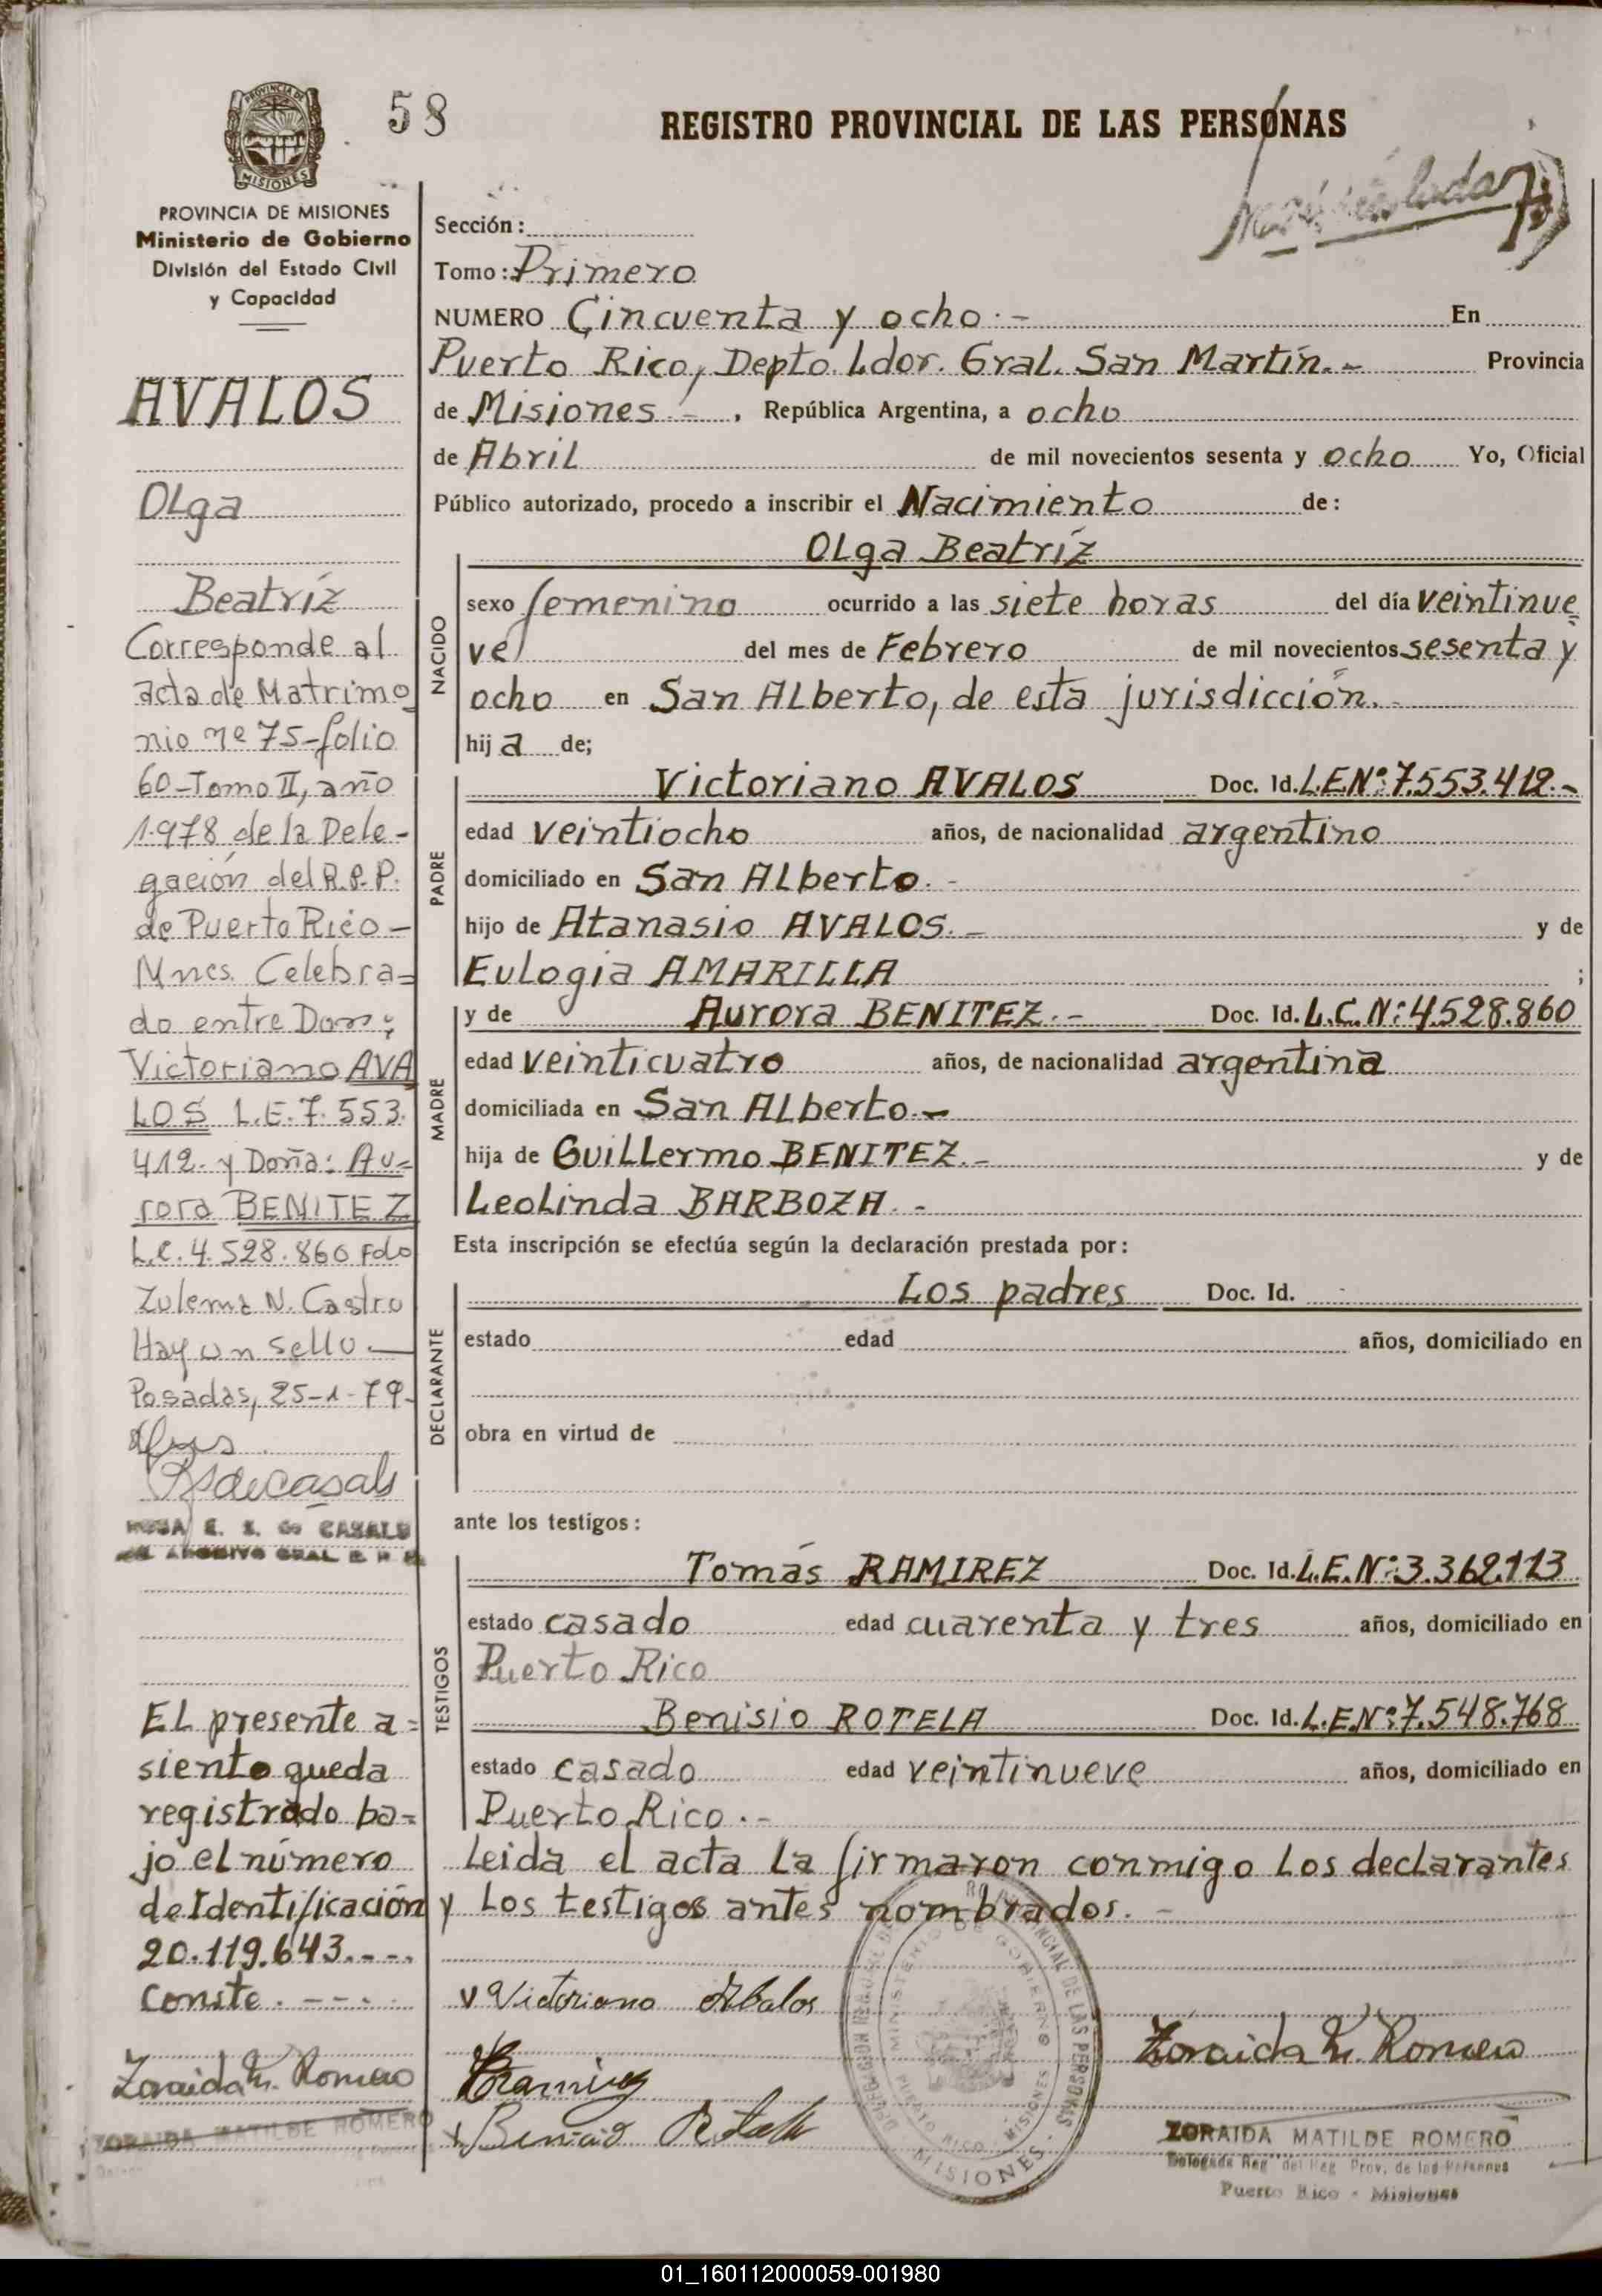 58
REGISTRO PROVINCIAL DE LAS PERSONAS
PROVINCIA DE
MISIONES
PROVINCIA DE MISIONES
Ministerio de Gobierno
División del Estado Civil
y Capacidad
AVALOS
Olga
Beatríz
Corresponde al
acta de Matrimo
nio nº 75-folio
60-Tomo II, año
1.978 de la Dele-
gación del R.P.P.
de Puerto Rico-
Mnes. Celebra-
do entre Don:
Victoriano AVA
LOS L.E. 7.553.
412.- y Doña: Au-
rora BENITEZ
L.C. 4.528.860 Fdo
Zulema N. Castro
Hay un sello.
Posadas, 25-1-79-
El presente a-
siento queda
registrado ba-
jo el número
de Identificación
20.119.643.----
Conste.----
Zoraida M. Romero
ZORAIDA MATILDE ROMERO
Sección:
Tomo: Primero
NUMERO Cincuenta y ocho.- En
Puerto Rico, Depto. Ldor. Gral. San Martín.- Provincia
de Misiones.-, República Argentina, a ocho
de Abril de mil novecientos sesenta y ocho Yo, Oficial
Público autorizado, procedo a inscribir el Nacimiento de:
Olga Beatríz
NACIDO
sexo femenino ocurrido a las siete horas del día veintinue
ve del mes de Febrero de mil novecientos sesenta y
ocho en San Alberto, de esta jurisdicción.-
hija de;
PADRE
Victoriano AVALOS Doc. Id. L.E.Nº:7.553.412.-
edad veintiocho años, de nacionalidad argentino
domiciliado en San Alberto.-
hijo de Atanasio AVALOS.- y de
Eulogia AMARILLA ;
MADRE
y de Aurora BENITEZ.- Doc. Id. L.C.N:4.528.860
edad veinticuatro años, de nacionalidad argentina
domiciliada en San Alberto.-
hija de Guillermo BENITEZ.- y de
Leolinda BARBOZA.-
Esta inscripción se efectúa según la declaración prestada por:
DECLARANTE
Los padres Doc. Id.
estado edad años, domiciliado en
obra en virtud de
ante los testigos:
TESTIGOS
Tomás RAMIREZ Doc. Id. L.E.Nº:3.362.113
estado casado edad cuarenta y tres años, domiciliado en
Puerto Rico
Benisio ROTELA Doc. Id. L.E.Nº:7.548.768
estado casado edad veintinueve años, domiciliado en
Puerto Rico.-
Leida el acta la firmaron conmigo los declarantes
y los testigos antes nombrados.-
Victoriano Abalos
Zoraida M. Romero
MINISTERIO DE GOBIERNO
PUERTO RICO - MISIONES
MISIONES
ZORAIDA MATILDE ROMERO
Delegada Reg. del Reg. Prov. de las Personas
Puerto Rico - Misiones
01_160112000059-001980